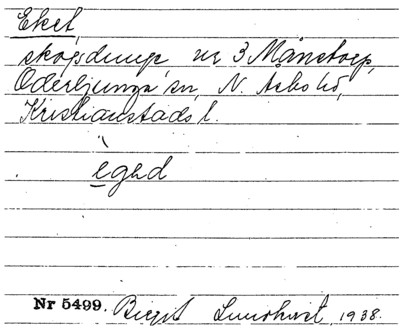 Eket
skogsdunge nr 3 Månstorp,
Oderljunga sn, N. Åsbo hd,
Kristianstads l.
ègəd
Nr 5499. Birgit Lundqvist 1938.